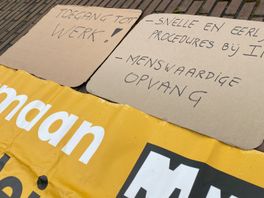 TOEGANG TOT
WERK!
- SNELLE EN EERL
PROCEDURES BIJ I
- MENSWAARDIGE
OPVANG
maan